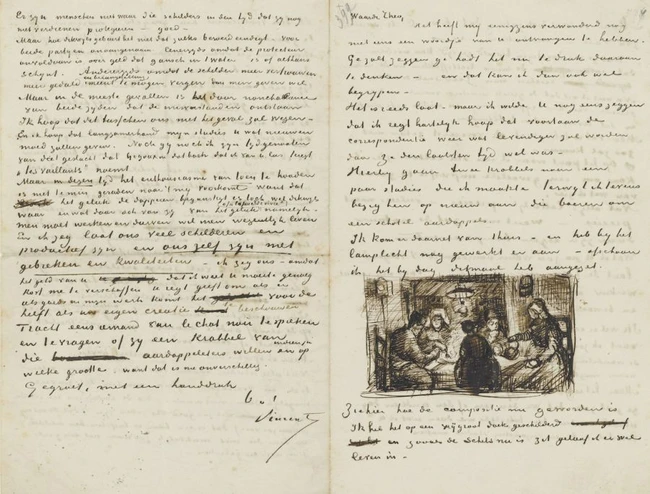 Er zijn menschen met waar die schilders in den tijd dat zij nog
niet verdienen protegeeren – goed –
Maar hoe dikwijls gebeurt het niet dat zulks beroerd eindigt – voor
beide partijen onaangenaam Eenerzijds omdat de protecteur
ontevreden is over geld dat gansch in't water is of althans
schijnt. Anderzijds omdat de schilder meer vertrouwen
meer geduld meer te mogen vergen dan men geven wil
Maar in de meeste gevallen is het door nonchalance
van beide zijden dat de misverstanden ontstaan
Ik hoop dat dit tusschen ons niet het geval zal wezen –
En ik hoop dat langzamerhand mijn studies u wat nieuwen
moed zullen geven. Noch gij noch ik zijn tijdgenooten
van dat geslacht dat
"les vaillants" noemt
Maar in dezen tijd het enthousiasme van toen te houden
is niet te min geraden naar't mij voorkomt want dat
het geluk de dapperen begunstigt is toch wel dikwijls
waar en wat daar ook van zij van het geluk
men moet werken en durven wil men wezenlijk leven
En ik zeg laat ons veel schilderen en
productief zijn en ons zelf zijn met
gebreken en kwaliteiten – ik zeg ons – omdat
het geld van u dat ik weet u moeite genoeg
kost me te verschaffen u regt geeft om als er
iets goeds in mijn werk komt het voor de
helft als uw eigen creatie te beschouwen
Tracht eens iemand van le chat noir te spreken
en te vragen of zij een krabbel van
die aardappeleters willen en zoo ja op
welke grootte. want dat is me onverschillig
Gegroet, met een handdruk
b. à t
Vincent
Waarde Theo,
Het heeft mij eenigzins verwonderd nog
niet eens een woordje van u ontvangen te hebben.
Ge zult zeggen ge hadt het nu te druk daaraan
te denken – en dat kan ik dan ook wel
begrijpen –
Het is reeds laat – maar ik wilde u nog eens zeggen
dat ik regt hartelijk hoop dat voortaan de
correspondentie weer wat levendiger zal worden
dan ze den laatsten tijd wel was –
Hierbij gaan twee krabbels naar een
paar studies die ik maakte terwijl ik tevens
bezig ben op nieuw aan die boeren om
een schotel aardappels.
Ik kom er daarnet van thuis – en heb bij het
lamplicht nog gewerkt er aan – ofschoon
ik het bij dag ditmaal heb aangezet.
Ziehier hoe de compositie nu geworden is
Ik heb het op een vrij groot doek geschilderd
en zooals de schets nu is zit geloof ik er wel
leven in –